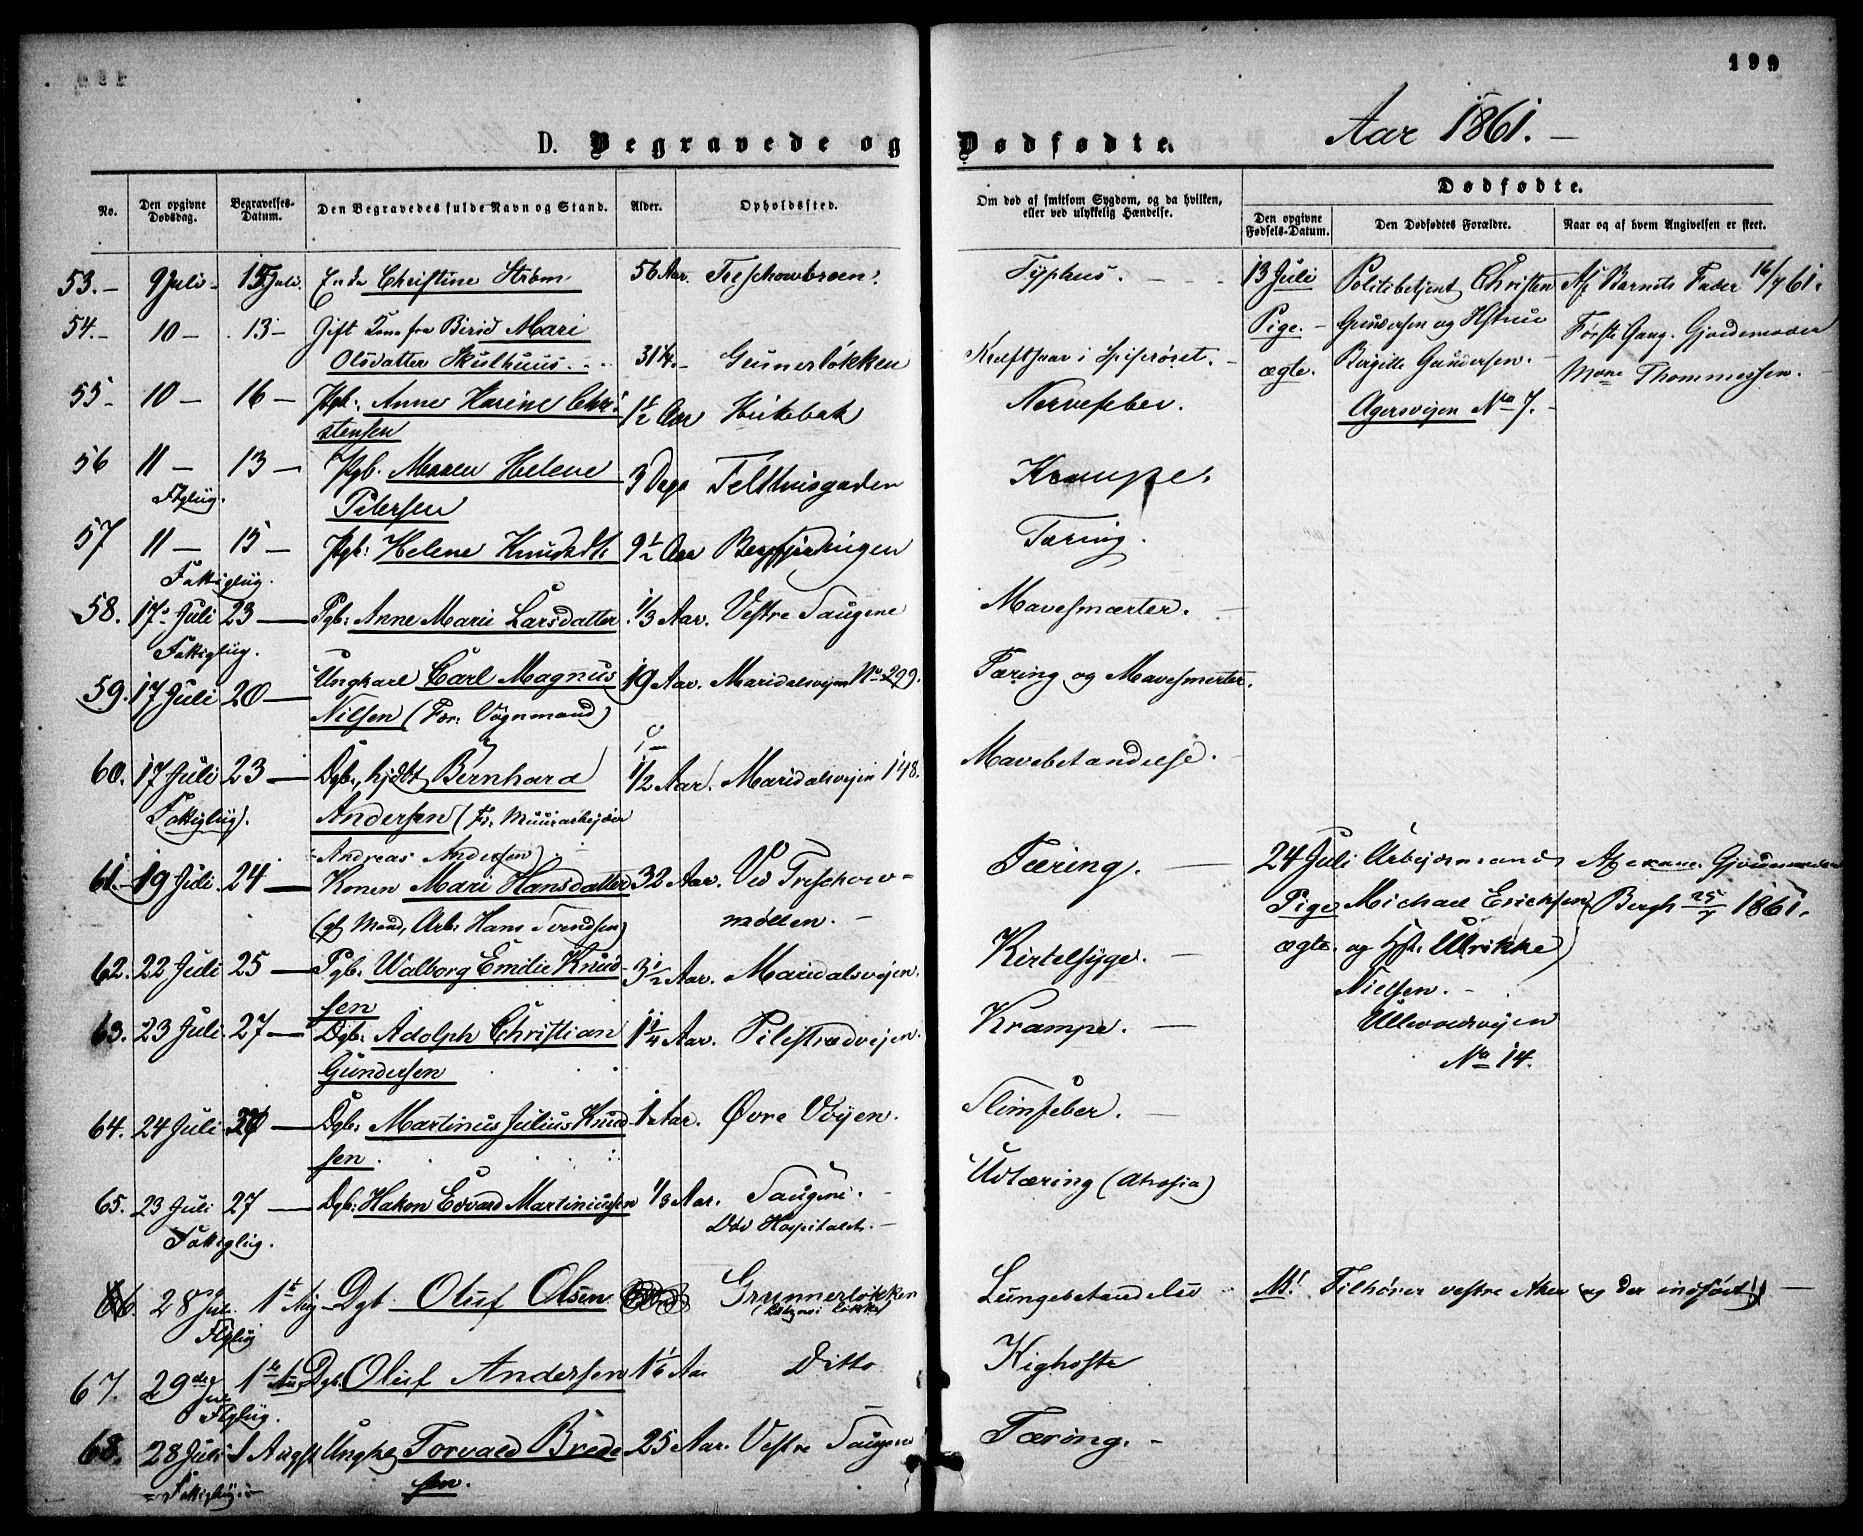 199
Aar 1861. –
D. Begravede og Dødfødte.
No.
Den opgivne Dødsdag.
Begravelses-Datum.
Den Begravedes fulde Navn og Stand.
Alder.
Opholdssted.
Om død af smitsom Sygdom, og da hvilken, eller ved ulykkelig Hændelse.
Dødfødte.
Den opgivne Fødsels-Datum.
Den Dødfødtes Forældre.
Naar og af hvem Angivelsen er skeet.
53. – 9 Juli – 15 Juli. Enke Christine Strøm 56 Aar. Treschowbroen. Typhus. – 13 Juli Politibetjent Christen Af Barnets Fader 16/7 61.
54. – 10 – 13 – Gift Kone fra Birid Mari Pige. – Gundersen og Hstru Første Gang. Gjordemoder
Olsdatter Skulhuus 31 Grünerløkken Kræftsaar i Spiserøret. – ægte. Birgitte Gundersen. – Thommessen.
55 – 10 – 16 – Pgb. Anne Karine Chri- 1 1/2 Aar Nervefeber. Agersvejen No 7. –
stensen
56 11 – 13 – Pgb. Maren Helene 3 Dage Felthuisgaden Krampe.
Ftgliig. Petersen
57 11 – 15 – Pgb. Helene Knudsdt. 9 1/2 Aar Bergfjerdingen Tæring.
Fattigliig.
58. 17. Juli 23 – Pgb. Anne Marie Larsdatter 1/3 Aar. Vestre Saugene Mavesmærter.
Fattigliig.
59. 17 Juli 20 – Ungkarl Carl Magnus 19 Aar. Maridalsvejen No 299. Tæring og Mavesmerter.
Nilsen (Far: Vognmand)
60. 17 Juli 23 – Dgb., hjdbt Bernhard 1/2 Aar. Maridalsvejen 148. Mavebetændelse.
Fattigliig. Andersen (Fr. Muurarbejder
Andreas Andersen)
61. – 19 Juli 24 – Konen Mari Hansdatter 32 Aar. Ved Treschow- Tæring. – 24 Juli Arbejdsmand
(gf Mand, Arb: Hans Svendsen) møllen. – Pige Michael Erichsen Bergh 25/7 1861.
62. 22 Juli 25 – Pgb. Walborg Emilie Knud- 3 1/2 Aar. Maridalsvejen. Kirtelsyge. – ægte. og Hst. Ulrikke
sen Nielsen. –
63. 23 Juli. 27 – Dgb: Adolph Christian 1 1/4 Aar. Pilestrædvejen. Krampe. – Ullevoldsvejen
Gundersen No 14.
64. 24 Juli – Dgb: Martinus Julius Knud- 1 Aar. Øvre Vøyen. Slimfeber. –
sen.
65. 23 Juli 27 – Dgb: Hakon Edvard Martiniussen 1/3 Aar. Saugene. – Udtæring (Atrofia)
Fattigliig. Død Hospitalet. –
66. 28 Juli 1st Aug Dgb Oluf Olsen Grünnerløkken Lungebetændelse NB! Tilhører vestre Aker og der indført! –
Ftgliig
67. 29de Juli 1ste Au Dgb. Oluf Andersen 1 1/6 Aar Ditto Kighoste
Ftgliig.
68. 28 Juli 1 Augst Ungk. Torvald Brede- 25 Aar. Vestre Saugene Tæring. –
Fattigliig sen.